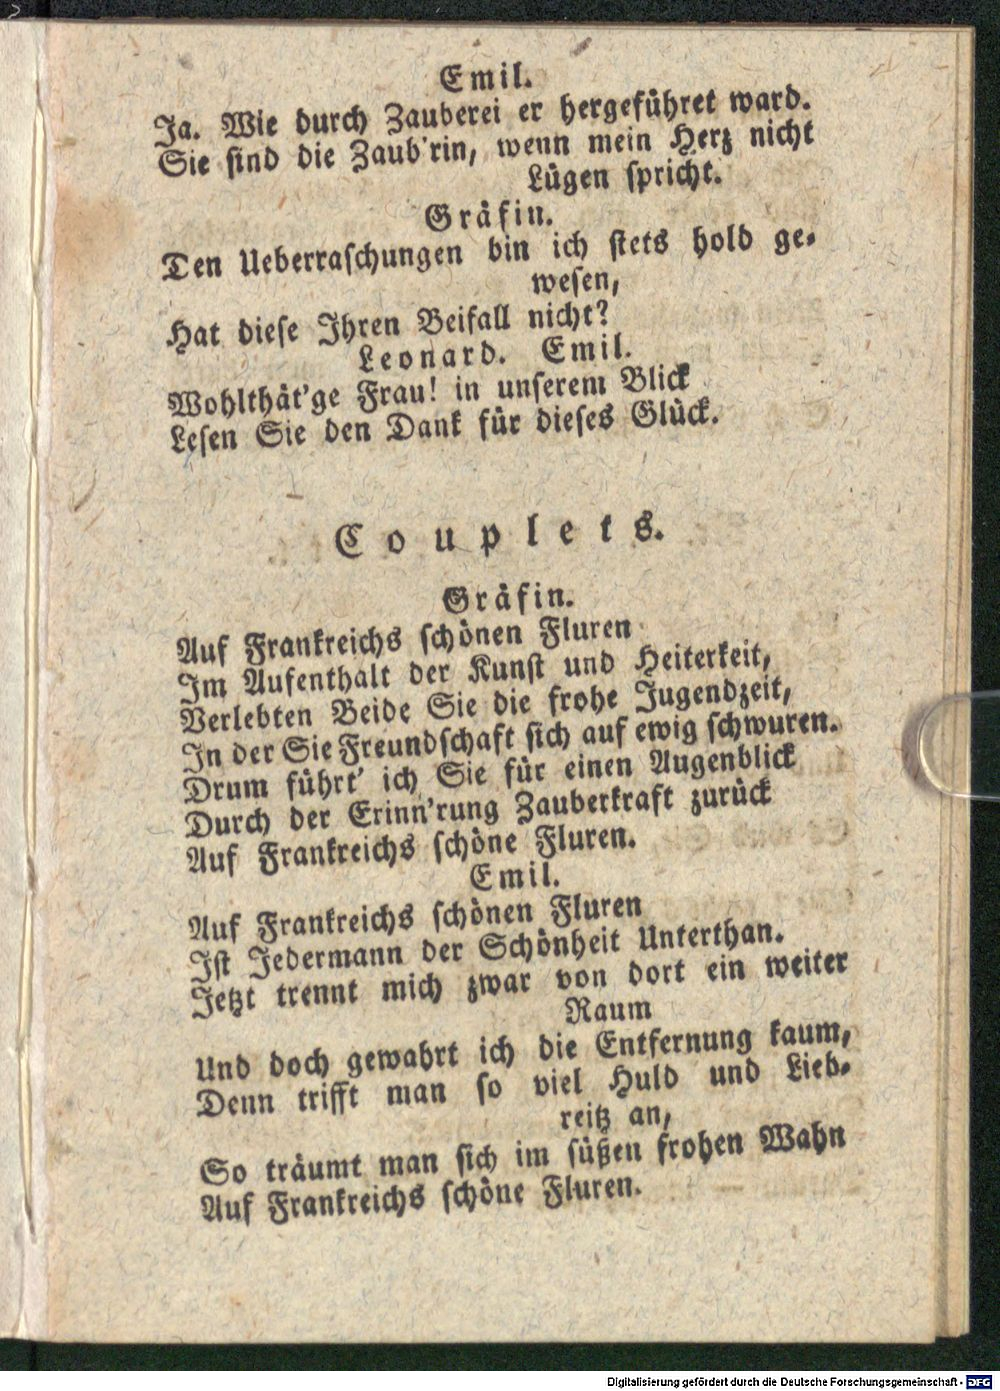 Emil.
Ja. Wie durch Zauberei er hergeführet ward.
Sie sind die Zaub'rin, wenn mein Herz nicht
Lügen spricht.
Gräfin.
Den Ueberraschungen bin ich stets hold ge-
wesen,
Hat diese Ihren Beifall nicht?
Leonard. Emil.
Wohlthät'ge Frau! in unserem Blick
Lesen Sie den Dank für dieses Glück.
Couplets.
Gräfin.
Auf Frankreichs schönen Fluren
Im Aufenthalt der Kunst und Heiterkeit,
Verlebten Beide Sie die frohe Jugendzeit,
In der Sie Freundschaft sich auf ewig schwuren.
Drum führt' ich Sie für einen Augenblick
Durch der Erinn'rung Zauberkraft zurück
Auf Frankreichs schöne Fluren.
Emil.
Auf Frankreichs schönen Fluren
Ist Jedermann der Schönheit Unterthan.
Jetzt trennt mich zwar von dort ein weiter
Raum
Und doch gewahrt ich die Entfernung kaum,
Denn trifft man so viel Huld und Lieb-
reitz an,
So träumt man sich im süßen frohen Wahn
Auf Frankreichs schöne Fluren.
Digitalisierung gefördert durch die Deutsche Forschungsgemeinschaft - DFG